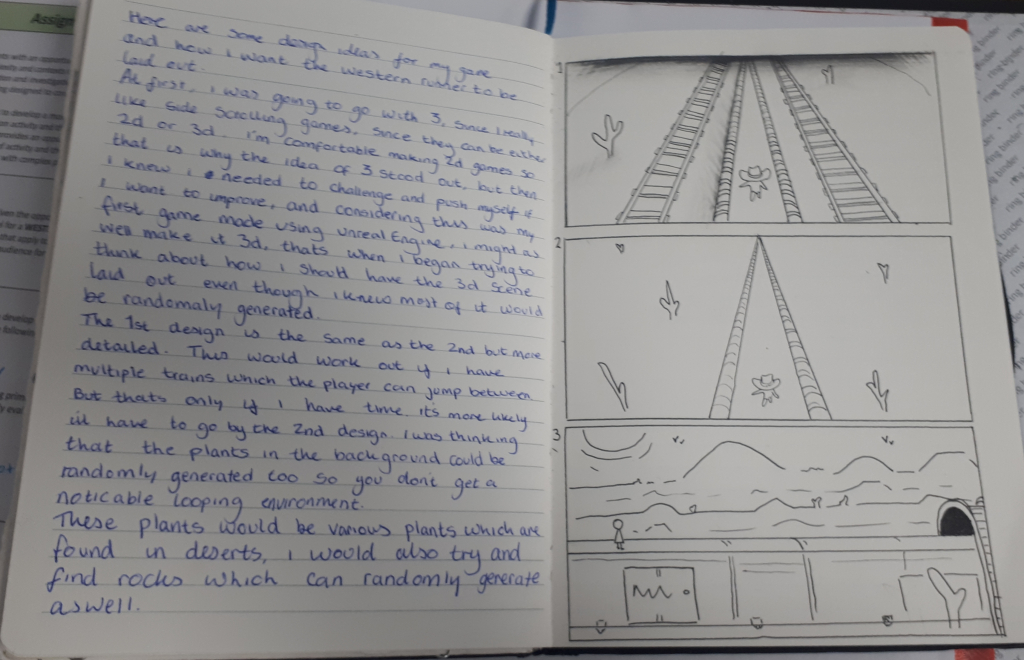 Here are some design ideas for my game
and how i want the western runner to be
laid out.
At first, i was going to go with 3, since i really
like side scrolling games, since they can be either
2d or 3d. i'm comfortable making 2d games so
that is why the idea of 3 stood out, but then
i knew i needed to challenge and push myself if
i want to improve, and considering this was my
first game made using Unreal Engine, i might as
well make it 3d, thats when i began trying to
think about how i should have the 3d scene
laid out even though i knew most of it would
be randomaly generated.
The 1st design is the same as the 2nd but more
detailed. This would work out if i have
multiple trains which the player can jump between
But thats only if i have time. It's more likely
ill have to go by the 2nd design. I was thinking
that the plants in the background could be
randomly generated too so you don't get a
noticable looping environment.
These plants would be various plants which are
found in deserts, i would also try and
find rocks which can randomly generate
aswell.
1
2
3
Assign
ring binder